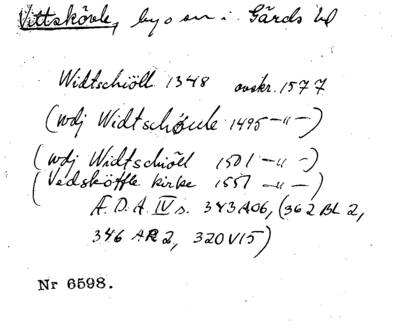 Vittskövle, by o sn i Gärds hd
Widtschiöll 1348 avskr. 1577
(wdj Widtschöule 1495 –"–)
(wdj Widtschiöll 1501 –"–)
(Vedsköffle kirke 1551 –"–)
Æ.D.A. IV s. 343 A06, (362 BL 2,
346 AR 2, 320 V15)
Nr 6598.